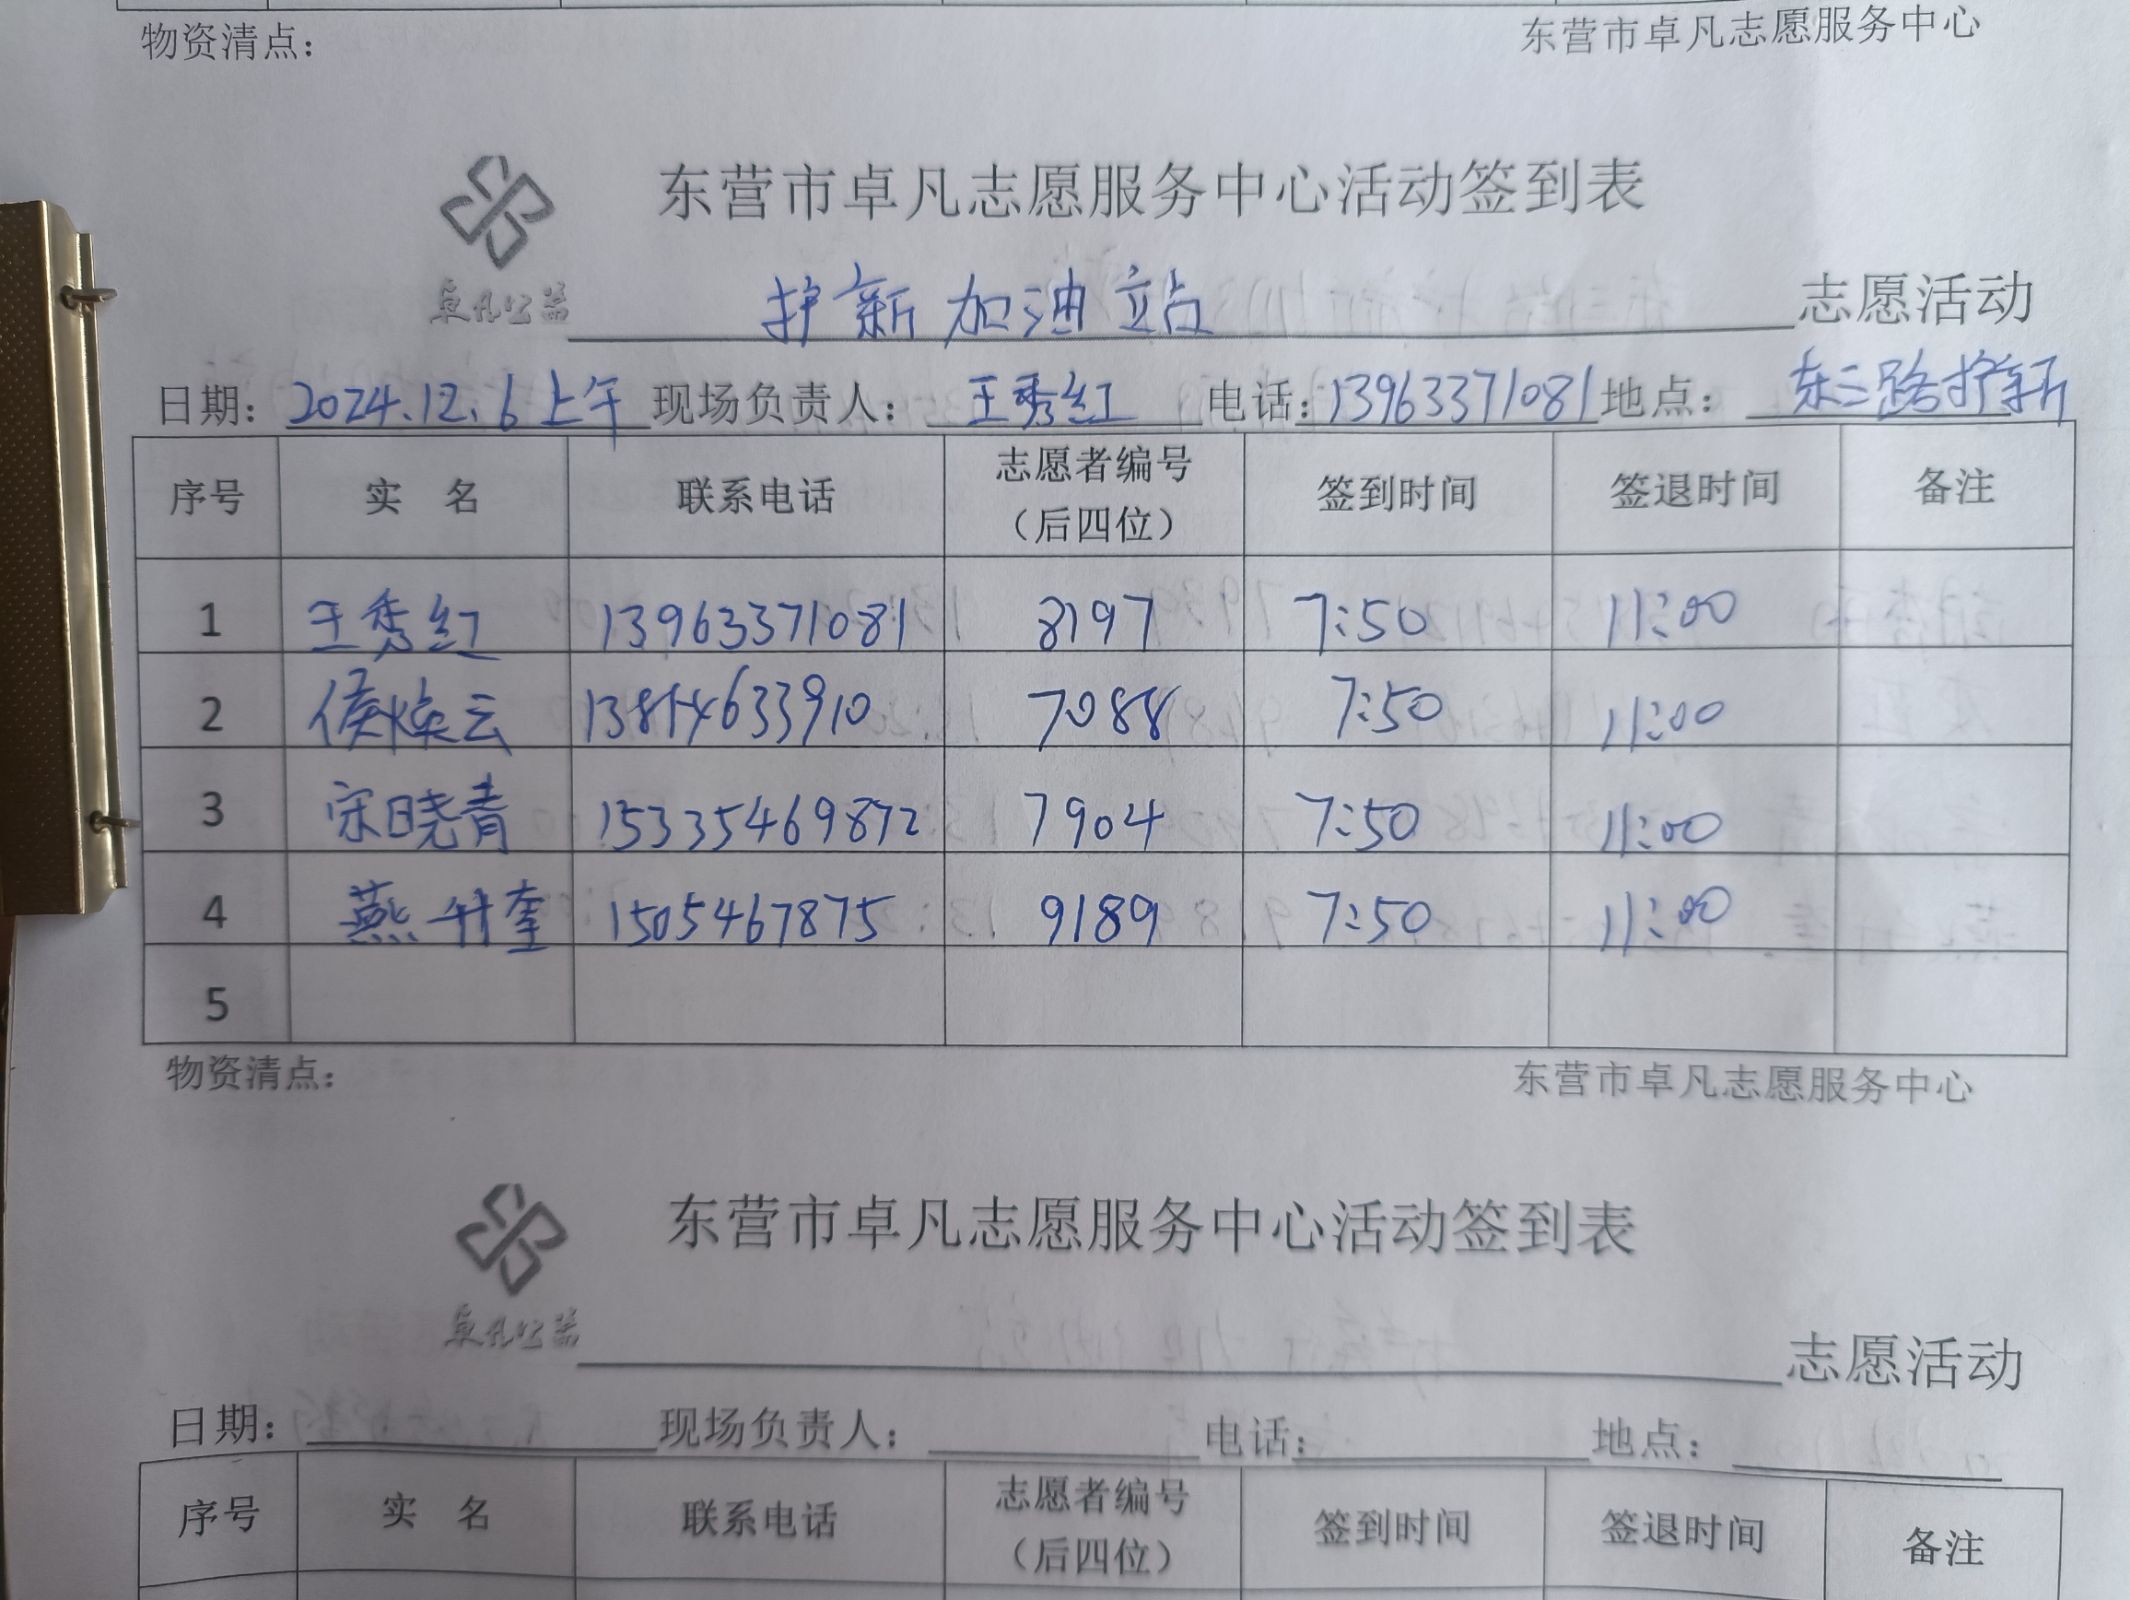 物资清点： 东营市卓凡志愿服务中心
东营市卓凡志愿服务中心活动签到表
卓凡公益 护新加油站 志愿活动
日期：2024.12.6上午 现场负责人：王秀红 电话：13963371081 地点：东三路护新
序号 实 名 联系电话 志愿者编号（后四位） 签到时间 签退时间 备注
1 王秀红 13963371081 8197 7:50 11:00
2 侯焕云 13854633910 7088 7:50 11:00
3 宋晓青 15335469872 7904 7:50 11:00
4 燕升奎 1505467875 9189 7:50 11:00
5
物资清点： 东营市卓凡志愿服务中心
东营市卓凡志愿服务中心活动签到表
卓凡公益 志愿活动
日期： 现场负责人： 电话： 地点：
序号 实 名 联系电话 志愿者编号（后四位） 签到时间 签退时间 备注